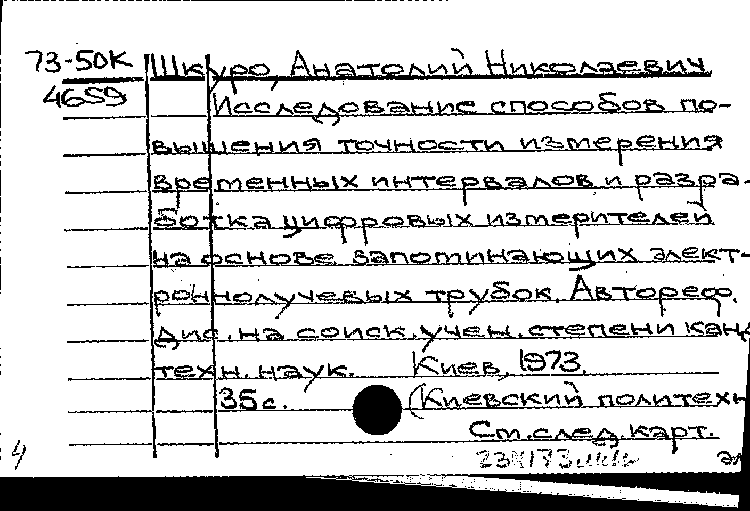 73-50К Шкуро, Анатолий Николаевич
4659 Исследование способов по-
вышения точности измерения
временных интервалов и разра-
ботка цифровых измерителей
на основе запоминающих элект-
роннолучевых трубок. Автореф.
дис. на соиск. учен. степени канд
техн. наук. Киев, 1973.
35 с. (Киевский политехн
См. след. карт.
4